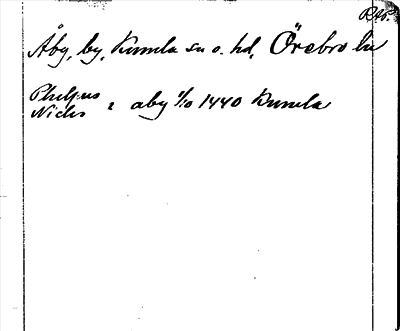 RAp.
Åby, by, Kumla sn o. hd, Örebro län
Philpus
Niclis i aby 1/10 1440 Kumla